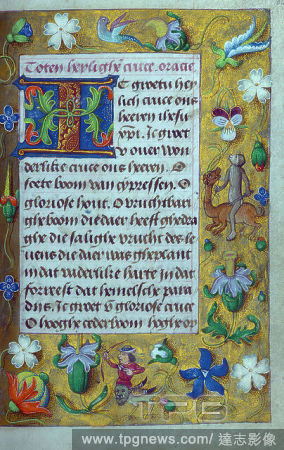 Toten heylighē cruce. oracie
IC groetu hey
lich cruce ons
heeren ihesu
xp̄i. Ic groet
v ouer won
derlike cruce ons heeren. O
soete boom van cypressen. O
gloriose hout. O vruchtbari
ghe boom die daer heeft ghedra
ghe die salighe vrucht des le
uens die daer was gheplant
in dat vaderlike harte in dat
forreest dat hemelsche para
dijs. Ic groet v gloriose cruce
O hooghe cederboom hoghe op
TPG
www.tpgnews.com/ 達志影像